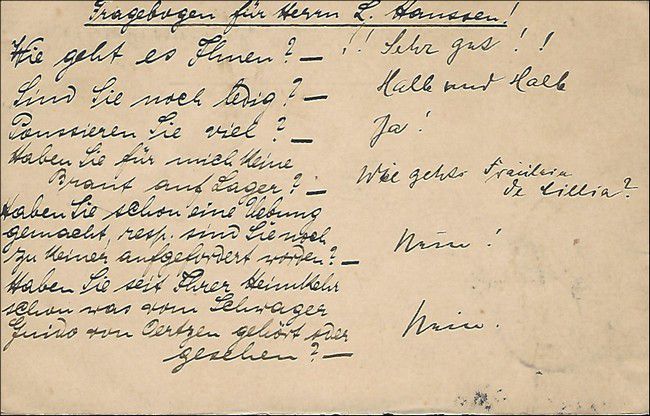 Fragebogen für Herrn L. Hanssen!
Wie geht es Ihnen? — !! Sehr gut!!
Sind Sie noch ledig? — Halb und Halb
Poussieren Sie viel? — Ja!
Haben Sie für mich keine
Braut auf Lager? — Wie gehts Fräulein
de Cillia?
Haben Sie schon eine Uebung
gemacht, resp. sind Sie noch
zu keiner aufgefordert worden? — Nein!
Haben Sie seit Ihrer Heimkehr
schon was vom Schwager
Guido von Oertzen gehört oder
gesehen? — Nein.